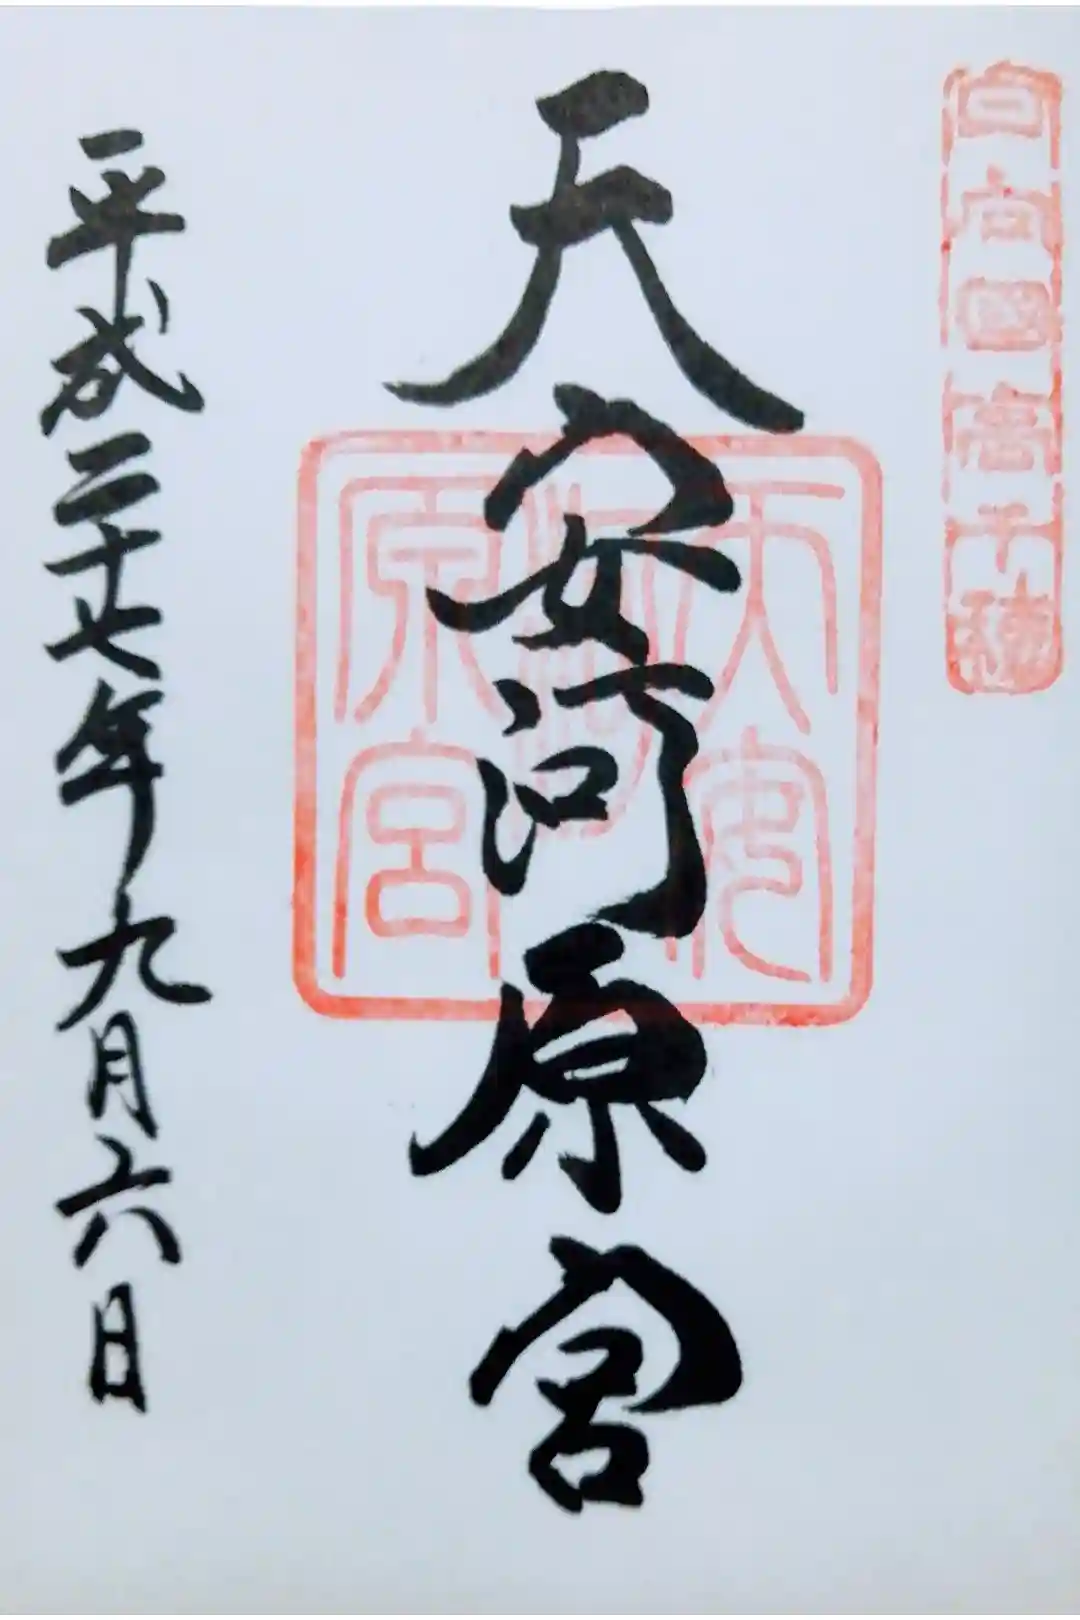 日向国高千穂
天安河原宮
天安河原宮
平成二十七年九月六日